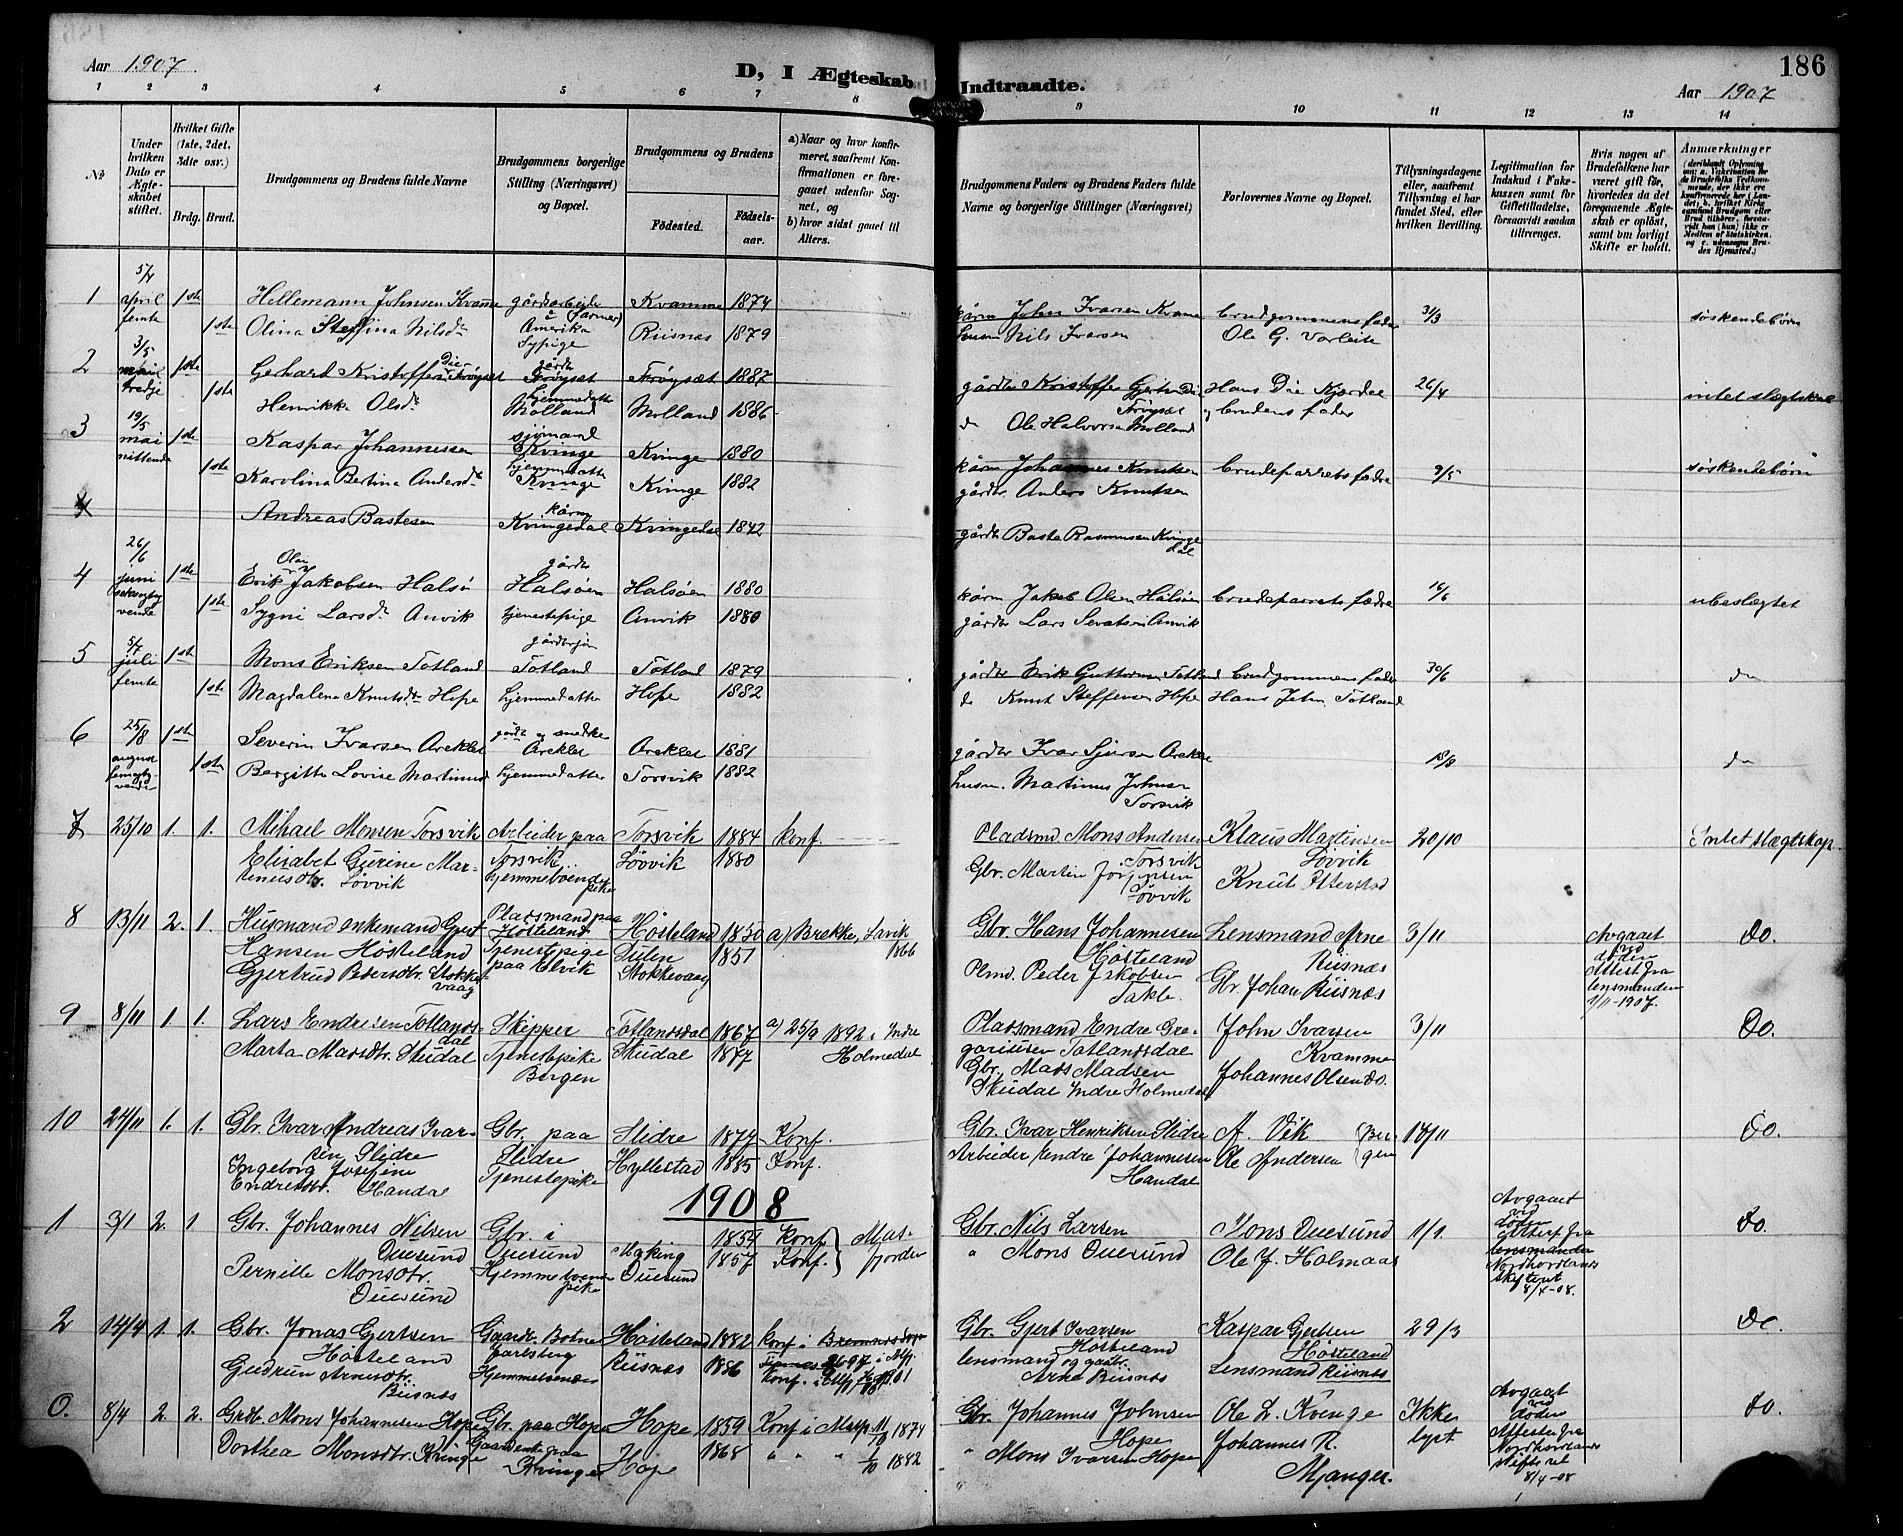 186
Aar 1907.
D, I Ægteskab Indtraadte.
Aar 1907
1 2 3 4 5 6 7 8 9 10 11 12 13 14
No
Under hvilken Dato er Ægteskabet stiftet.
Hvilket Gifte (1ste, 2det, 3die osv.)
Brdg. Brud.
Brudgommens og Brudens fulde Navne
Brudgommens borgerlige Stilling (Næringsvei) og Bopæl.
Brudgommens og Brudens
Fødested.
Fødselsaar.
a) Naar og hvor konfirmeret, saafremt Konfirmationen er foregaaet udenfor Sognet, og
b) hvor sidst gaaet til Alters.
Brudgommens Faders og Brudens Faders fulde Navne og borgerlige Stillinger (Næringsvei)
Forlovernes Navne og Bopæl.
Tillysningsdagene eller, saafremt Tillysning ei har fundet Sted, efter hvilken Bevilling.
Legitimation for Indskud i Enkekassen samt for Giftetilladelse, forsaavidt saadan tiltrænges.
Hvis nogen af Brudefolkene har været gift før, hvorledes da det foregaaende Ægteskab er opløst, samt om lovligt Skifte er holdt.
Anmærkninger
1 5/4 april femte 1ste Hellemann Johnsen Kvamme gårdsarbeide Kvamme 1874 kårm John Ivarsen Kvamme brudgommens fader 31/3 søskendebørn
1ste Olina Steffina Nilsdr Amerika Sypige Riisnæs 1879 Nils Ivarsen Ole G. Varleite
2 3/5 mai tredje 1ste Gerhard Kristoffersen Frøyset gårdbr Frøyset Frøysæt 1887 gårdbr Kristoffer Gjertsen Frøyset Hans Die Kjørdee 26/4 intet slægtskab
1ste Henrikke Olsdr hjemmedatter Molland Molland 1886 do Ole Halvorsen Molland og brudens fader
3 19/5 mai nittende 1ste Kaspar Johannessen sjømand Kvinge Kvinge 1880 kårm Johannes Knutsen brudeparrets fædre 9/5 søskendebørn
1ste Karolina Bertina Andersdr hjemmedatter Kvinge Kvinge 1882 gårdbr. Anders Knutsen
4 Andreas Bastesen kårm Kvingedal Kvingedal 1842 gårdbr Baste Rasmussen Kvingedal
4 26/6 juni seksogtyvende 1ste Olai Erik Jakobsen Halsø gårdbr Halsøen Halsøen 1880 kårm Jakob Olsen Halsøen brudeparrets fædre 16/6 ubeslægtet
1ste Sygni Larsdr Anvik tjenestepige Anvik 1880 gårdbr Lars Sevatsen Anvik
5 5/7 juli femte 1ste Mons Eriksen Totland gårdbrsøn Totland Totland 1879 gårdbr Erik Guttormsen Totland brudgommens fader 30/6 do
1ste Magdalene Knutsdr Hope hjemmedatter Hope 1882 do Knut Steffensen Hope Hans Jetm. Totland
6 25/8 august femogtyvende 1ste Severin Ivarsen Areklet gårdbr og snedker Areklet Areklet 1881 gårdbr Ivar Sjursen Areklet 18/8 do
1ste Bergitte Lovise Martinusd hjemmedatter Torsvik 1882 husm. Martinus Johnsen Torsvik
7 25/10 1. 1. Mikael Monsen Torsvik Arbeider paa Torsvik Torsvik 1884 konf. Pladsmd Mons Andersen Torsvik Klaus Martinsen Løvvik 20/10 Intet slægtskap.
Elisabet Gurine Martinusdtr. Løvvik hjemmeboende pike Løvvik 1880 Gbr. Martin Jørgensen Løvvik Knut Ytterstad
8 13/11 2. 1. Husmand enkemand Gjert Hansen Høsteland Pladsmand paa Høsteland Høsteland 1850 a) Brække, Lavik 1866 Gbr. Hans Johannesen Høsteland Lensmand Arne Riisnæs 3/11 Avgaaet ved døden Attest fra lensmanden 1/11-1907. Do.
Gjertrud Pedersdtr. Stokkevaag Tjenestepige paa Elvik Stokkevaag 1851 Plmd. Peder Jakobsen Takle. Gbr Johan Riisnæs
9 8/11 1 1. Lars Endresen Totlandsdal Skipper Totlandsdal 1867 a) 25/9 1892 i Indre Holmedal Pladsmand Endre Gregoriusen Totlandsdal John Ivarsen Kvamme 3/11 Do.
Marta Madsdtr. Skudal Tjenestepike Bergen Skudal 1877 Gbr. Mads Madsen Skudal Indre Holmedal Johannes Olsen do.
10 24/11 1. 1. Gbr. Ivar Andreas Ivarsen Slidre Gbr. paa Slidre Slidre 1877 Konf. Gbr. Ivar Henriksen Slidre A. Vik 17/11 Do.
Ingeborg Josefine Endresdtr. Handal Tjenestepike Hyllestad 1885 Konf. Arbeider Endre Johannesen Handal Ole Andersen Bergen
1908
1 3/1 2. 1 Gbr. Johannes Nilsen Duesund Gbr. i Duesund Haking 1854 Konf. Masfjorden Gbr. Nils Larsen Mons Duesund 1/1. Avgaaet ved døden Attest fra lensmanden Nordhordlands 8/4-08. Do.
Pernille Monsdtr. Duesund Hjemmeboende pike Duesund 1857 Konf. " Mons Duesund Ole J. Holmaas
2 14/4 1. 1. Gbr. Jonas Gjertsen Høsteland Gaardbr. Botne Jarlsberg Høsteland 1882 Konf. i Gbr. Gjert Ivarsen Høsteland Kaspar Gjertsen Høsteland 29/3 Do.
Gudrun Arnesdtr. Riisnæs Hjemmeværende Riisnæs 1886 Konf. lensmand og gaardbr. Arne Riisnæs Lensmand Riisnæs
0. 8/4 2. 2. Grdb. Mons Johannesen Hope Gbr. paa Hope Hope 1859 Konf i Masf. 1874 Gbr. Johannes Johnsen Hope Ole L. Kvinge Ikke lyst Avgaat ved døden Attester fra Nordhordlands skifteret 8/4-08 Do.
Dorthea Monsdtr. Kvinge Gaardenke paa Kvinge Hope 1868 " " " 1/10 1882 " Mons Ivarsen Hope Johannes R. Mjanger.